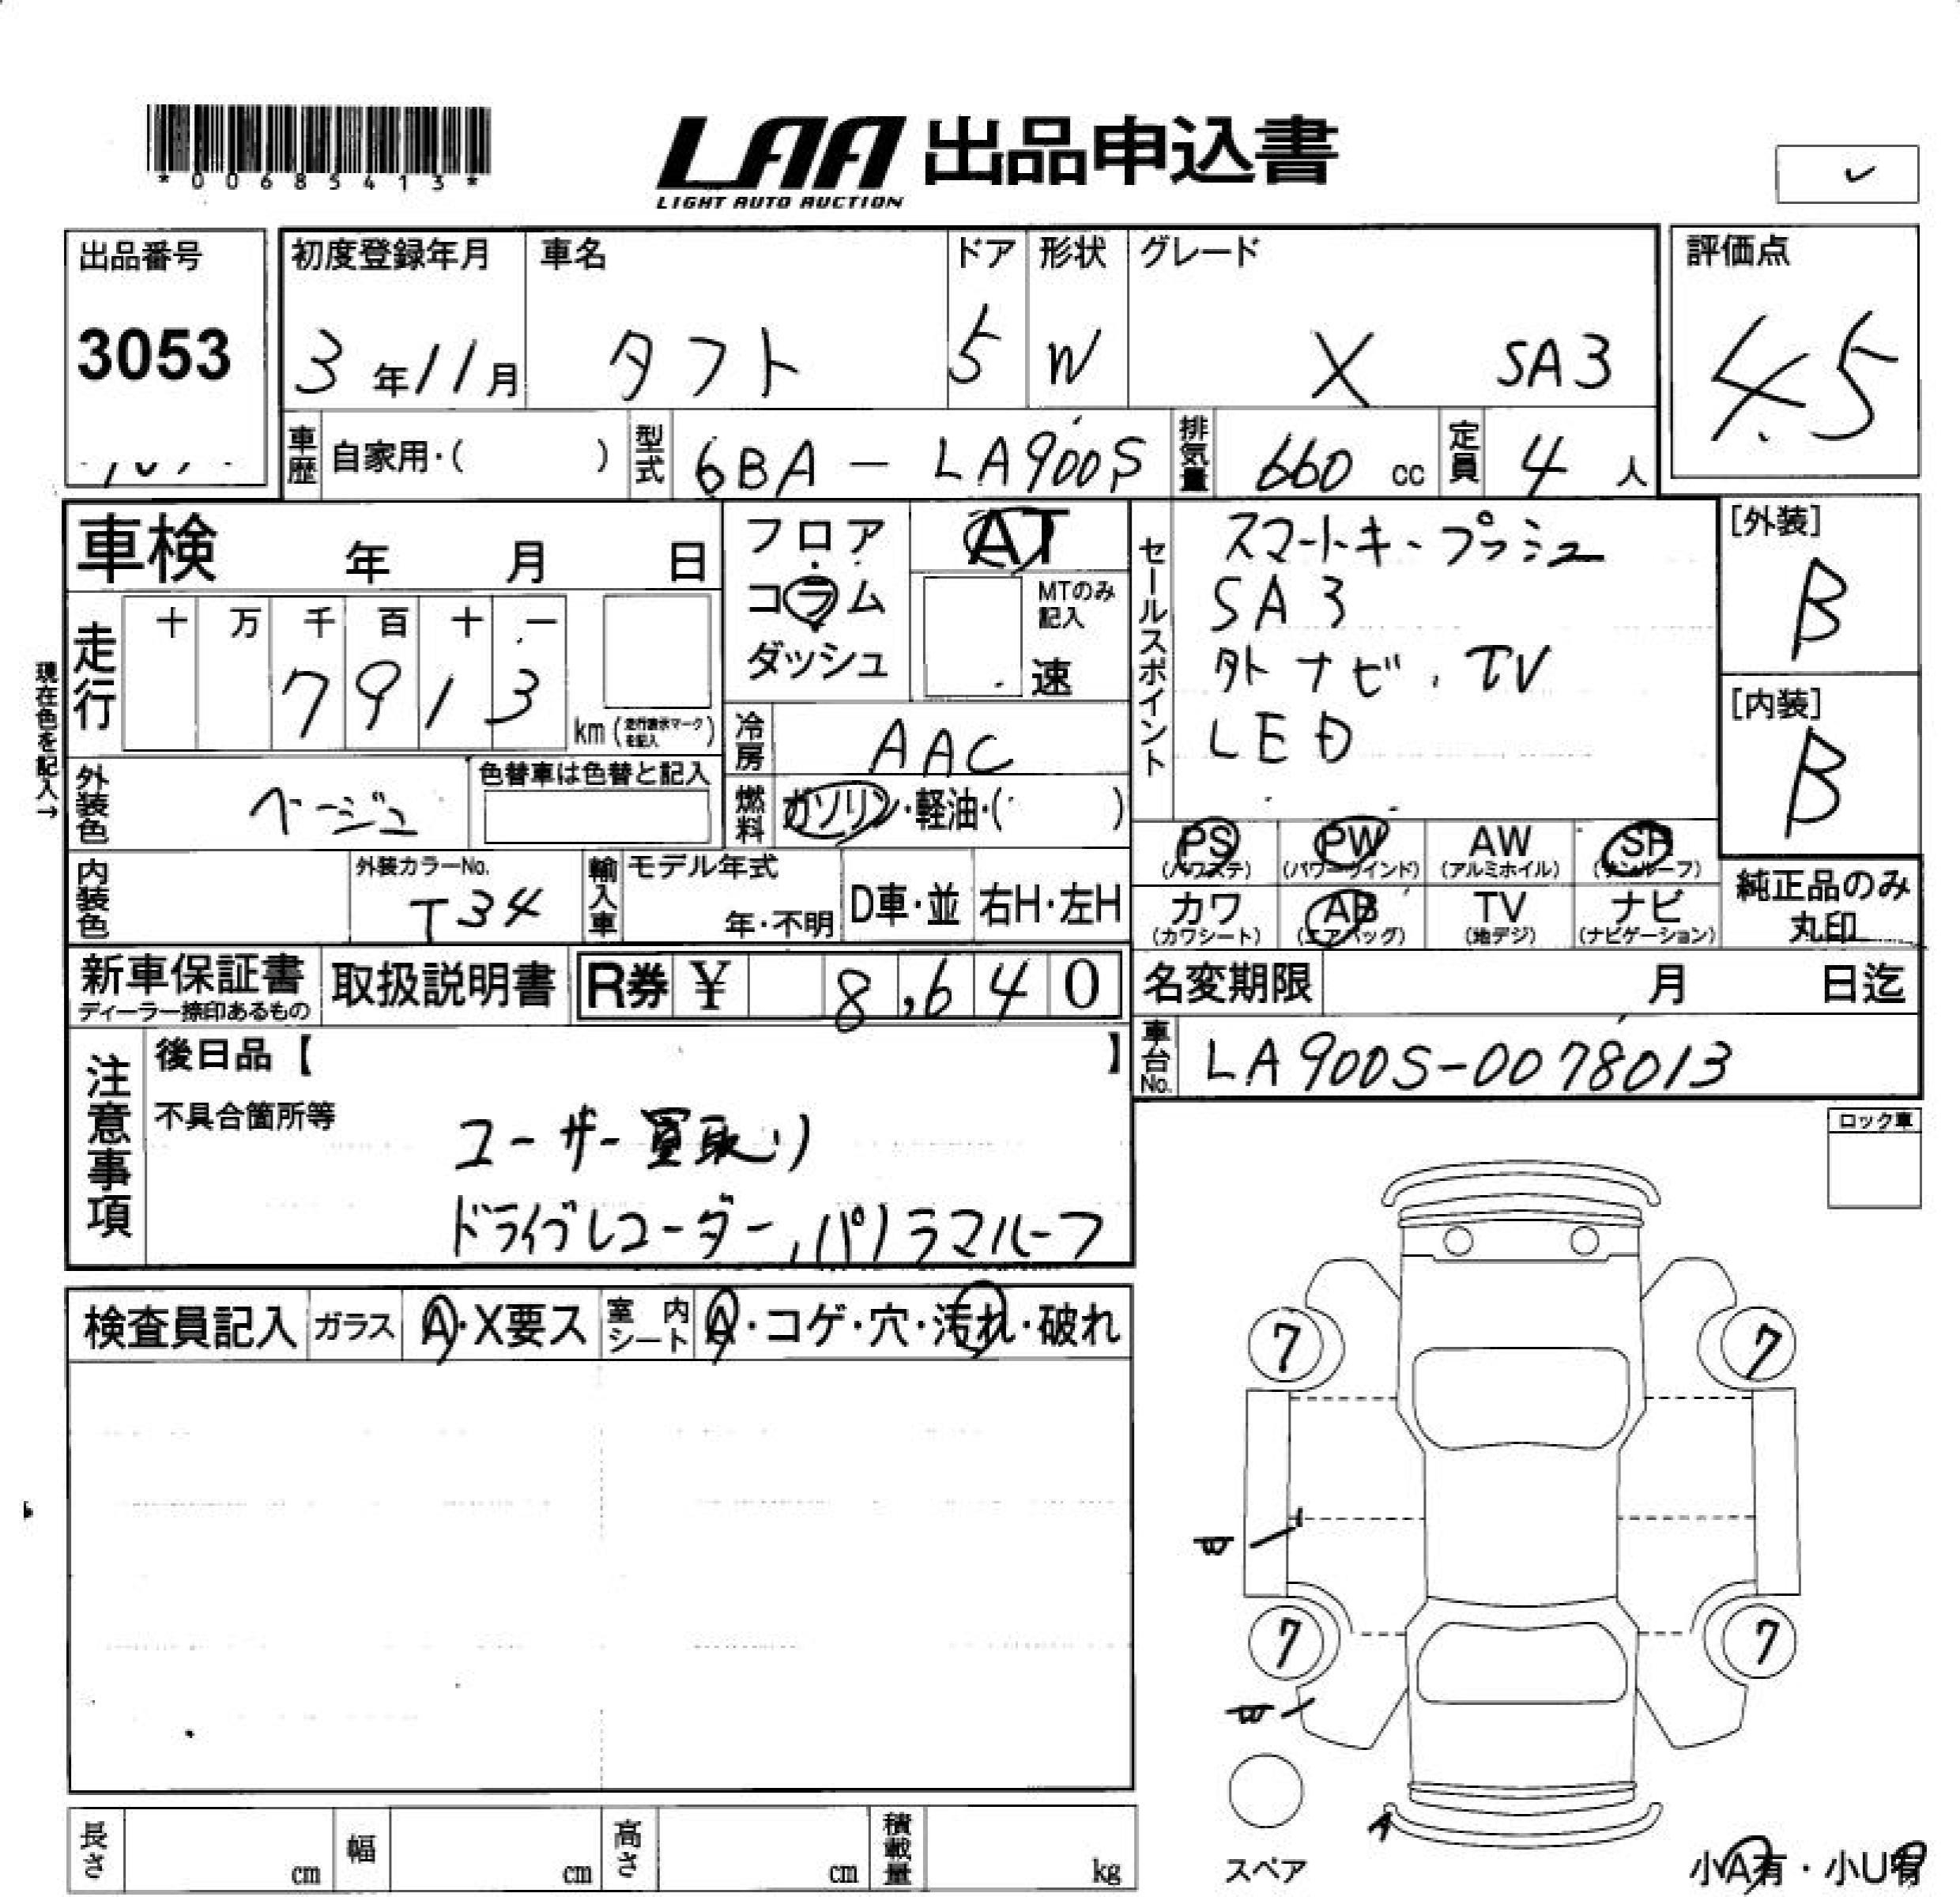 *00685413*
LAA 出品申込書
LIGHT AUTO AUCTION
出品番号
3053
初度登録年月
3年11月
車名
タフト
ドア
5
形状
W
グレード
X SA3
評価点
4.5
車歴
自家用・( )
型式
6BA-LA900S
排気量
660 cc
定員
4 人
車検 年 月 日
フロア
コラム
ダッシュ
AT
MTのみ
記入
速
セールスポイント
スマートキー プッシュ
SA3
外ナビ、TV
LED
[外装]
B
[内装]
B
現在色を記入→
走行
十 万 千 百 十 一
7 9 1 3
km (走行表示マークを記入)
冷房
AAC
外装色
ベージュ
色替車は色替と記入
燃料
ガソリン・軽油・( )
PS
(パワステ)
PW
(パワーウインド)
AW
(アルミホイル)
SR
(サンルーフ)
カワ
(カワシート)
AB
(エアバッグ)
TV
(地デジ)
ナビ
(ナビゲーション)
純正品のみ
丸印
内装色
外装カラーNo.
T34
輸入車
モデル年式
年・不明
D車・並
右H・左H
新車保証書
ディーラー捺印あるもの
取扱説明書
R券 ¥ 8,640
名変期限 月 日迄
車台No.
LA900S-0078013
注意事項
後日品【 】
不具合箇所等
ユーザー買取り
ドライブレコーダー、パノラマルーフ
ロック車
検査員記入
ガラス
A・X要ス
室内シート
A・コゲ・穴・汚れ・破れ
7
7
7
7
A
スペア
長さ cm
幅 cm
高さ cm
積載量 kg
小A有・小U有